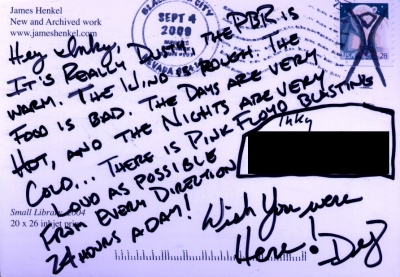 James Henkel
New and Archived work
www.jameshenkel.com
SEPT 4
2009
Hey Inky,
It's Really Dusty, the PBR is
warm. The Wind is rough. The
Food is bad. The Days are very
Hot, and the Nights are very
Cold... There is Pink Floyd Blasting
Loud as possible
From Every Direction
24 hours a day!
Inky
Wish You were
Here!
Small Library, 2004
20 x 26 inkjet print